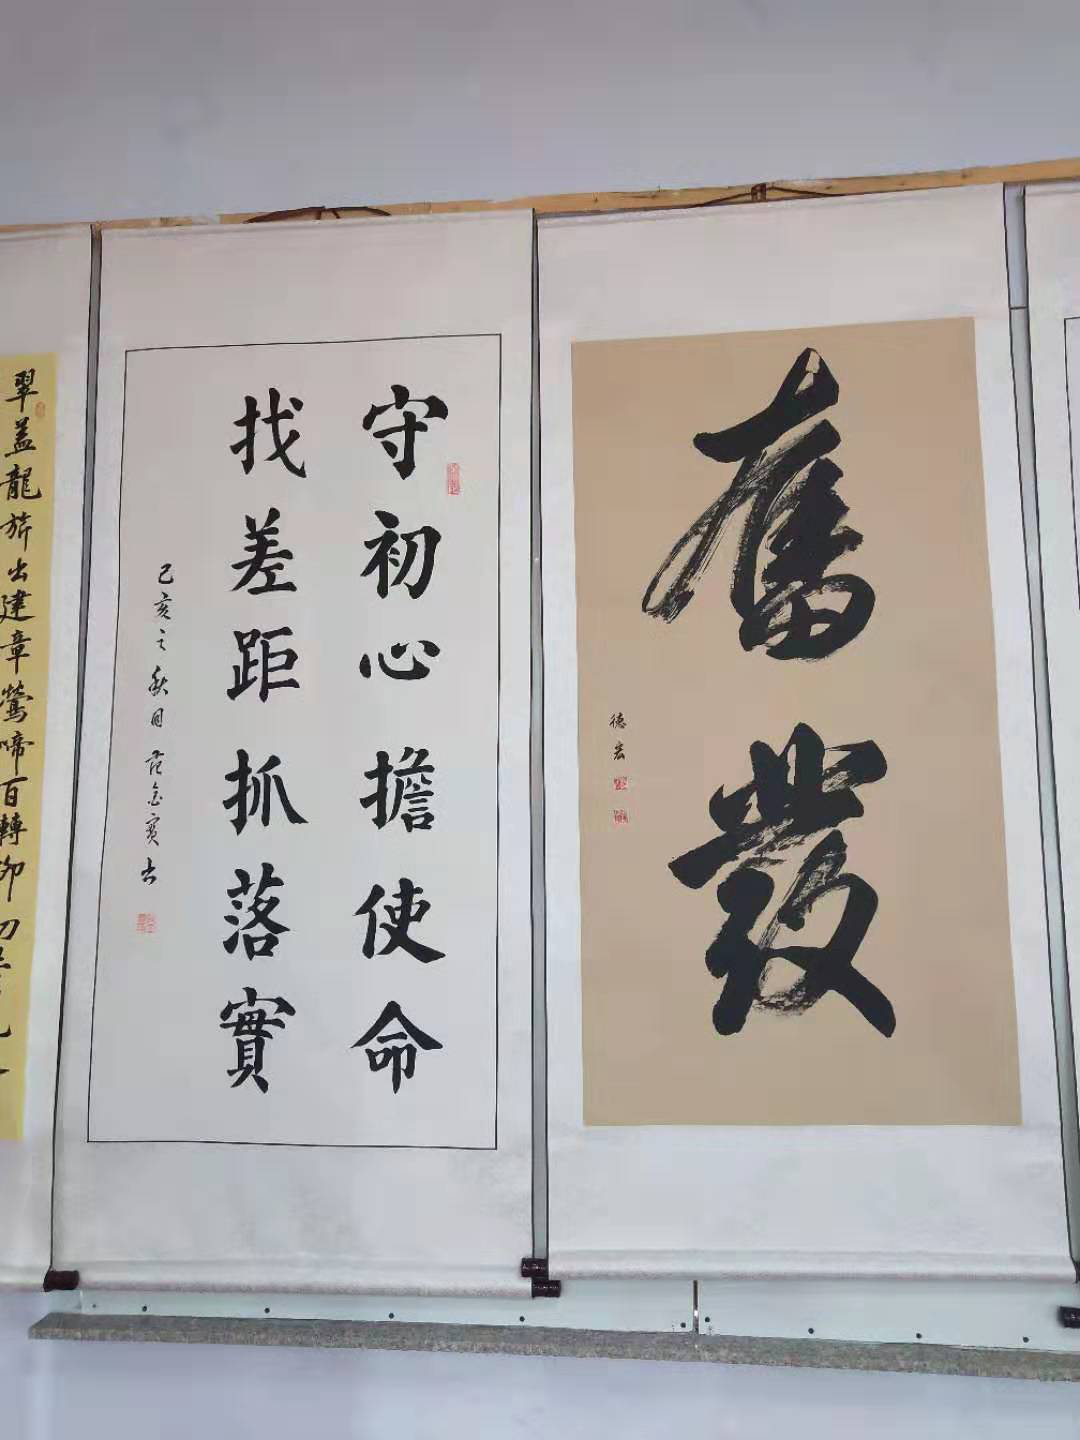 奮發
德宏
守初心擔使命
找差距抓落實
己亥之秋月范金寶书
翠蓋龍旂出建章鶯啼百轉柳初